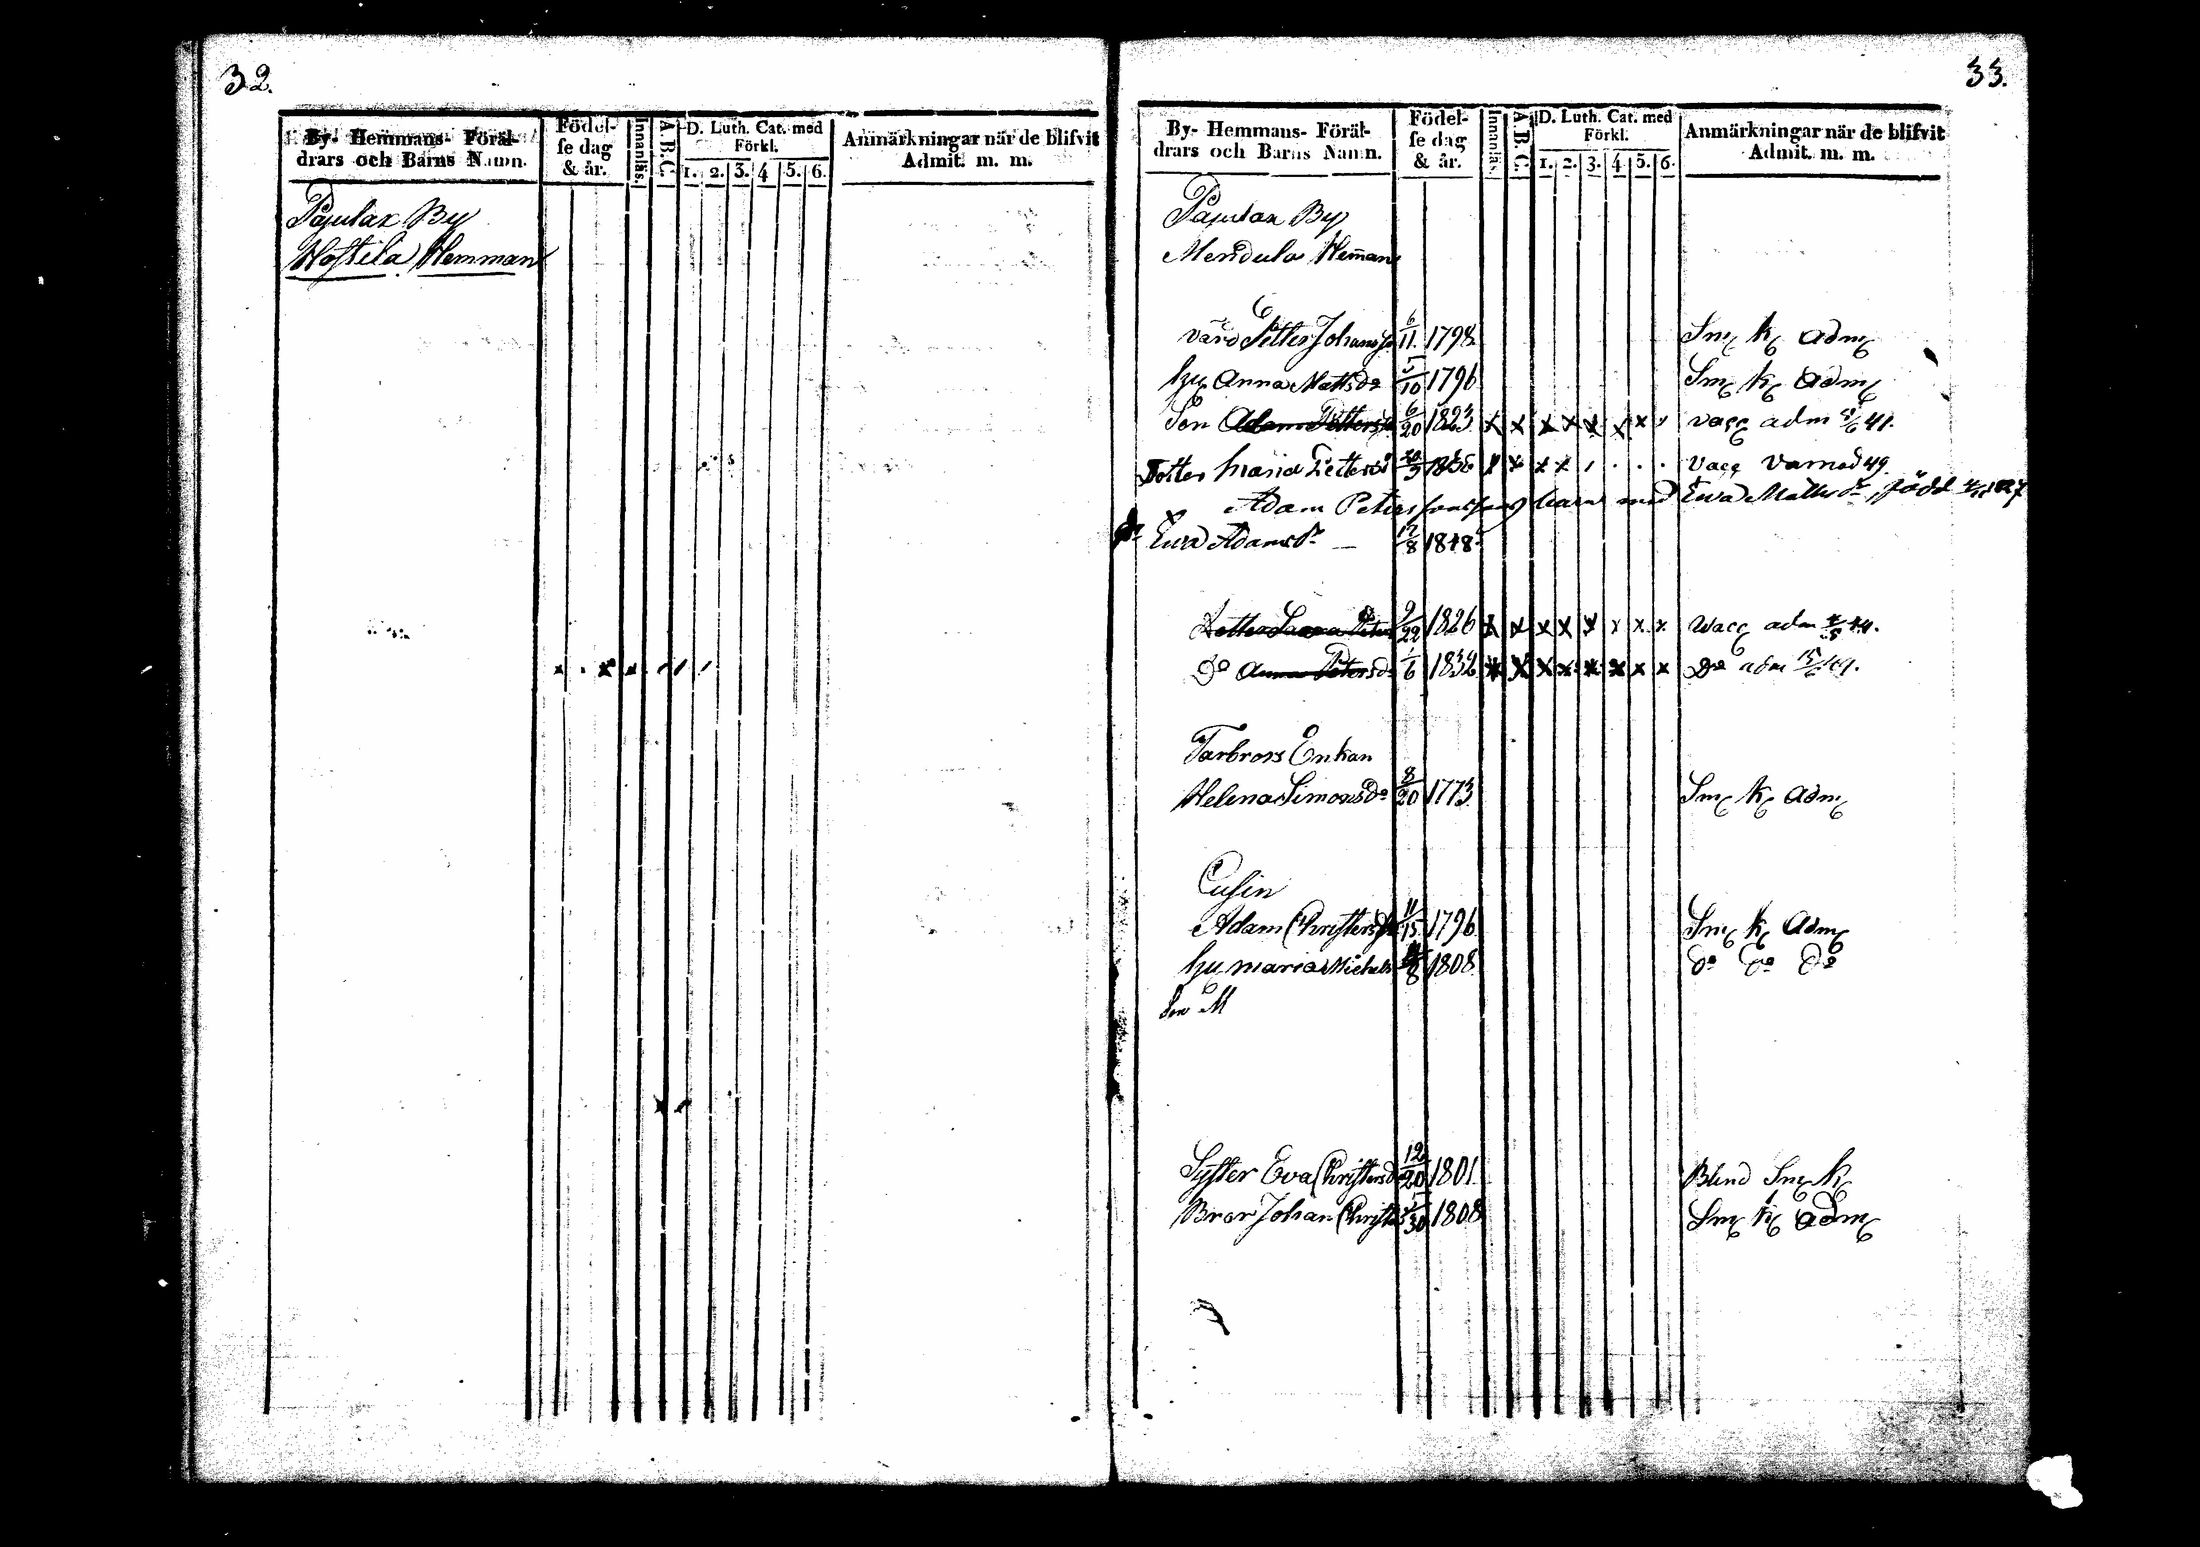 32.
By- Hemmans- Föräl-
drars och Barns Namn.
Födel-
se dag
& år.
Innanläs.
A.B.C.
D. Luth. Cat. med
Förkl.
1. 2. 3. 4 5. 6.
Anmärkningar när de blifvit
Admit. m. m.
Pajulax By
Hostila Hemman
33.
By- Hemmans- Föräl-
drars och Barns Namn.
Födel-
se dag
& år.
Innanläs.
A.B.C.
D. Luth. Cat. med
Förkl.
1. 2. 3. 4 5. 6.
Anmärkningar när de blifvit
Admit. m. m.
Pajulax By
Mendula Hem̄an
värd Petter Johans 6/11. 1798 Sm k adm
hu Anna Mattsdr 5/10 1796 Sm k adm
Son Adam Petters 6/20 1823 x x x x x x x vacc adm 41.
Dotter Maria Pettersd 1836 x x x x vacc 49
Adam Peterssons barn med Ewa Mattsdr, född
dr Ewa Adamsdr — 17/8 1848
Dotter Peters 9/22 1826 x x x x x x x x Wacc adm 44.
Do Anna Petersdr 1/6 1832 x x x x x x x x Do adm 49.
Farbrors Enkan
Helena Simonsdr 8/20 1773 Sm k adm
Cusin
Adam Christers 11/15 1796 Sm k adm
hu maria Michels 8 1808 do do do
Son M
Syster Eva Christersd 12/20 1801 Blind Sm k
Bror Johan Christ 5/30 1808 Sm k adm